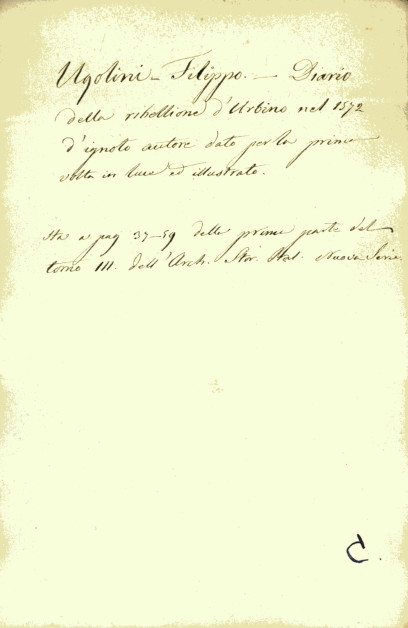 Ugolini - Filippo. - Diario
della ribellione d'Urbino nel 1572
d'ignoto autore dato per la prima
volta in luce ed illustrato.
sta a pag 37-59 della prima parte del
tomo III. dell'Arch. Stor. Ital. Nuova Serie.
C.